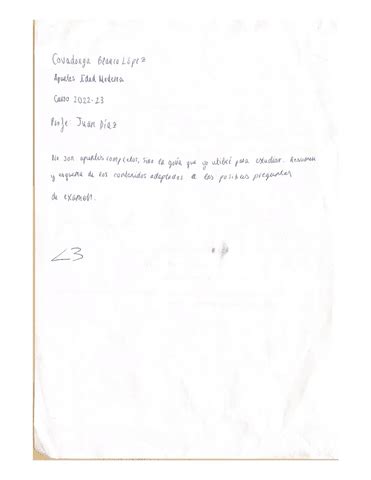 Covadonga Blanco López
Apuntes Edad Moderna
Curso 2022-23
Profe: Juan Díaz
No son apuntes completos, sino la guía que yo utilicé para estudiar. Resumen
y esquema de los contenidos adaptados a las posibles preguntas
de examen.
<3